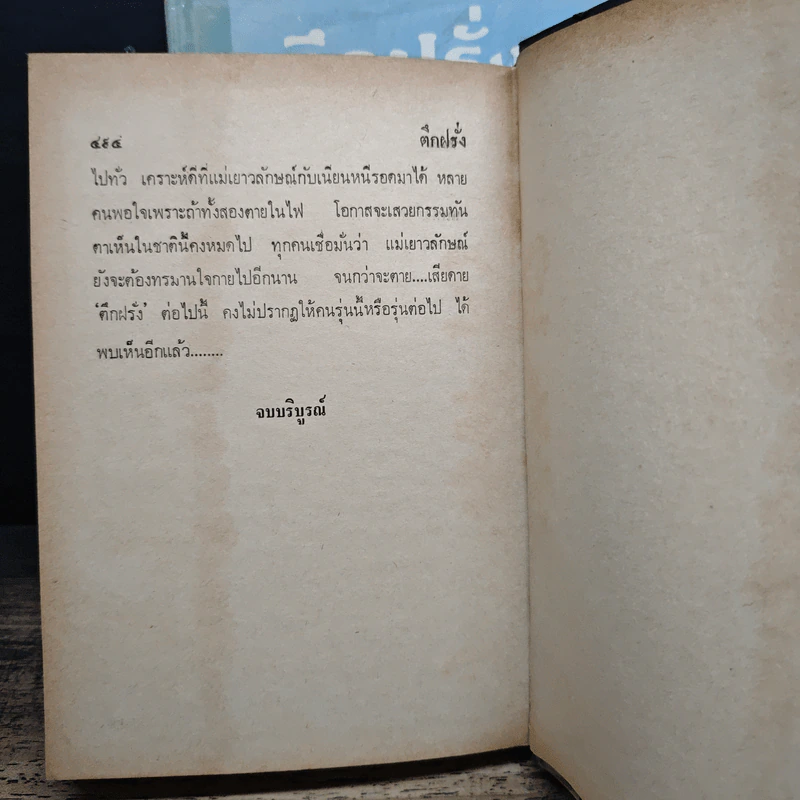 ตึกฝรั่ง
๔๙๔ ตึกฝรั่ง
ไปทั่ว เคราะห์ดีที่แม่เยาวลักษณ์กับเนียนหนีรอดมาได้ หลาย
คนพอใจเพราะถ้าทั้งสองตายในไฟ โอกาสจะเสวยกรรมทัน
ตาเห็นในชาตินี้คงหมดไป ทุกคนเชื่อมั่นว่า แม่เยาวลักษณ์
ยังจะต้องทรมานใจกายไปอีกนาน จนกว่าจะตาย....เสียดาย
‘ตึกฝรั่ง’ ต่อไปนี้ คงไม่ปรากฎให้คนรุ่นนี้หรือรุ่นต่อไป ได้
พบเห็นอีกแล้ว........
จบบริบูรณ์